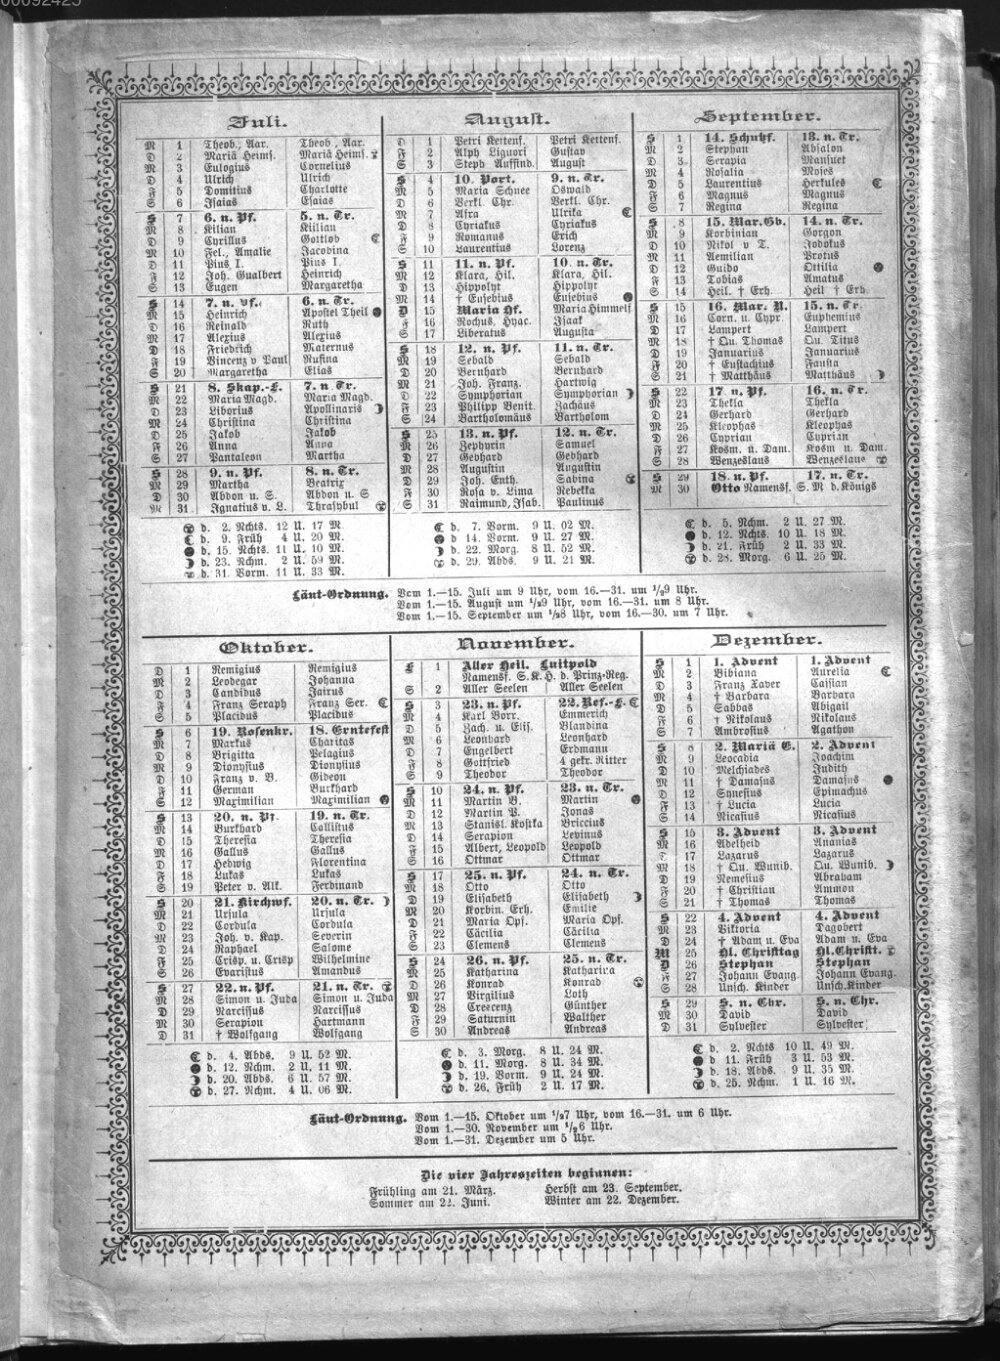 00092425
Juli.
M 1 Theob., Aar. Theob., Aar.
D 2 Mariä Heims. Mariä Heims.
M 3 Eulogius Cornelius
D 4 Ulrich Ulrich
F 5 Domitius Charlotte
S 6 Isaias Esaias
S 7 6. n. Pf. 5. n. Tr.
M 8 Kilian Kilian
D 9 Cyrillus Gottlob
M 10 Fel., Amalie Jacobina
D 11 Pius I. Pius I.
F 12 Joh. Gualbert Heinrich
S 13 Eugen Margaretha
S 14 7. n. Pf. 6. n. Tr.
M 15 Heinrich Apostel Theil
D 16 Reinald Ruth
M 17 Alexius Alexius
D 18 Friedrich Maternus
F 19 Vincenz v Paul Rufina
S 20 Margaretha Elias
S 21 8. Skap.-F. 7. n. Tr.
M 22 Maria Magd. Maria Magd.
D 23 Liborius Apollinaris
M 24 Christina Christina
D 25 Jakob Jakob
F 26 Anna Anna
S 27 Pantaleon Martha
S 28 9. n. Pf. 8. n. Tr.
M 29 Martha Beatrix
D 30 Abdon u. S. Abdon u. S
M 31 Ignatius v. L. Thrasybul
d. 2. Nchts. 12 U. 17 M.
d. 9. Früh 4 U. 20 M.
d. 15. Nchts. 11 U. 10 M.
d. 23. Nchm. 2 U. 59 M.
d. 31. Vorm. 11 U. 33 M.
August.
D 1 Petri Kettenf. Petri Kettenf.
F 2 Alph Liguori Gustav
S 3 Steph Auffind. August
S 4 10. Port. 9. n. Tr.
M 5 Maria Schnee Oswald
D 6 Verkl. Chr. Verkl. Chr.
M 7 Afra Ulrika
D 8 Cyriakus Cyriakus
F 9 Romanus Erich
S 10 Laurentius Lorenz
S 11 11. n. Pf. 10. n. Tr.
M 12 Klara, Hil. Klara, Hil.
D 13 Hippolyt Hippolyt
M 14 † Eusebius Eusebius
D 15 Maria Hf. Maria Himmelf
F 16 Rochus, Hyac. Isaak
S 17 Liberatus Augusta
S 18 12. n. Pf. 11. n. Tr.
M 19 Sebald Sebald
D 20 Bernhard Bernhard
M 21 Joh. Franz. Hartwig
D 22 Symphorian Symphorian
F 23 Philipp Benit. Zachäus
S 24 Bartholomäus Bartholom
S 25 13. n. Pf. 12. n. Tr.
M 26 Zephyrin Samuel
D 27 Gebhard Gebhard
M 28 Augustin Augustin
D 29 Joh. Enth. Sabina
F 30 Rosa v. Lima Rebekka
S 31 Raimund, Isab. Paulinus
d. 7. Vorm. 9 U. 02 M.
d 14. Vorm. 9 U. 27 M.
d. 22. Morg. 8 U. 52 M.
d. 29. Abds. 9 U. 21 M.
September.
S 1 14. Schutzf. 13. n. Tr.
M 2 Stephan Absalon
D 3 Serapia Mansuet
M 4 Rosalia Moses
D 5 Laurentius Herkules
F 6 Magnus Magnus
S 7 Regina Regina
S 8 15. Mar. Gb. 14. n. Tr.
M 9 Korbinian Gorgon
D 10 Nikol v T. Jodokus
M 11 Aemilian Protus
D 12 Guido Ottilia
F 13 Tobias Amatus
S 14 Heil. † Erh. Heil † Erh.
S 15 16. Mar. N. 15. n. Tr.
M 16 Corn. u. Cypr. Euphemius
D 17 Lampert Lampert
M 18 † Qu. Thomas Qu. Titus
D 19 Januarius Januarius
F 20 † Eustachius Fausta
S 21 † Matthäus Matthäus
S 22 17 n. Pf. 16. n. Tr.
M 23 Thekla Thekla
D 24 Gerhard Gerhard
M 25 Kleophas Kleophas
D 26 Cyprian Cyprian
F 27 Kosm. u. Dam. Kosm u. Dam.
S 28 Wenzeslaus Wenzeslaus
S 29 18. n. Pf. 17. n. Tr.
M 30 Otto Namensf. S. M d. Königs
d. 5. Nchm. 2 U. 27 M.
d. 12. Nchts. 10 U. 18 M.
d. 21. Früh 2 U. 33 M.
d. 28. Morg. 6 U. 25 M.
Läut-Ordnung. Vom 1.—15. Juli um 9 Uhr, vom 16.—31. um ½9 Uhr.
Vom 1.—15. August um ½9 Uhr, vom 16.—31. um 8 Uhr.
Vom 1.—15. September um ½8 Uhr, vom 16.—30. um 7 Uhr.
Oktober.
D 1 Remigius Remigius
M 2 Leodegar Johanna
D 3 Candidus Jairus
F 4 Franz Seraph Franz Ser.
S 5 Placidus Placidus
S 6 19. Rosenkr. 18. Erntefest
M 7 Markus Charitas
D 8 Brigitta Pelagius
M 9 Dionysius Dionysius
D 10 Franz v. B. Gideon
F 11 German Burkhard
S 12 Maximilian Maximilian
S 13 20. n. Pf. 19. n. Tr.
M 14 Burkhard Callistus
D 15 Theresia Theresia
M 16 Gallus Gallus
D 17 Hedwig Florentina
F 18 Lukas Lukas
S 19 Peter v. Alk. Ferdinand
S 20 21. Kirchwf. 20. n. Tr.
M 21 Ursula Ursula
D 22 Cordula Cordula
M 23 Joh. v. Kap. Severin
D 24 Raphael Salome
F 25 Crisp. u. Crisp Wilhelmine
S 26 Evaristus Amandus
S 27 22. n. Pf. 21. n. Tr.
M 28 Simon u. Juda Simon u. Juda
D 29 Narcissus Narcissus
M 30 Serapion Hartmann
D 31 † Wolfgang Wolfgang
d. 4. Abds. 9 U. 52 M.
d. 12. Nchm. 2 U. 11 M.
d. 20. Abds. 6 U. 57 M.
d. 27. Nchm. 4 U. 06 M.
November.
F 1 Aller Heil. Luitpold
Namensf. S. K. H. d. Prinz-Reg.
S 2 Aller Seelen Aller Seelen
S 3 23. n. Pf. 22. Ref.-F.
M 4 Karl Borr. Emmerich
D 5 Zach. u. Elis. Blandina
M 6 Leonhard Leonhard
D 7 Engelbert Erdmann
F 8 Gottfried 4 gekr. Ritter
S 9 Theodor Theodor
S 10 24. n. Pf. 23. n. Tr.
M 11 Martin B. Martin
D 12 Martin P. Jonas
M 13 Stanisl. Kostka Briccius
D 14 Serapion Levinus
F 15 Albert, Leopold Leopold
S 16 Ottmar Ottmar
S 17 25. n. Pf. 24. n. Tr.
M 18 Otto Otto
D 19 Elisabeth Elisabeth
M 20 Korbin. Erh. Emilie
D 21 Maria Opf. Maria Opf.
F 22 Cäcilia Cäcilia
S 23 Clemens Clemens
S 24 26. n. Pf. 25. n. Tr.
M 25 Katharina Katharina
D 26 Konrad Konrad
M 27 Virgilius Loth
D 28 Crescenz Günther
F 29 Saturnin Walther
S 30 Andreas Andreas
d. 3. Morg. 8 U. 24 M.
d. 11. Morg. 8 U. 34 M.
d. 19. Vorm. 9 U. 24 M.
d. 26. Früh 2 U. 17 M.
Dezember.
S 1 1. Advent 1. Advent
M 2 Bibiana Aurelia
D 3 Franz Xaver Cassian
M 4 † Barbara Barbara
D 5 Sabbas Abigail
F 6 † Nikolaus Nikolaus
S 7 Ambrosius Agathon
S 8 2. Mariä E. 2. Advent
M 9 Leocadia Joachim
D 10 Melchiades Judith
M 11 † Damasus Damasus
D 12 Synesius Epimachus
F 13 † Lucia Lucia
S 14 Nicasius Nicasius
S 15 3. Advent 3. Advent
M 16 Adelheid Ananias
D 17 Lazarus Lazarus
M 18 † Qu. Wunib. Qu. Wunib.
D 19 Nemesius Abraham
F 20 † Christian Ammon
S 21 † Thomas Thomas
S 22 4. Advent 4. Advent
M 23 Viktoria Dagobert
D 24 † Adam u. Eva Adam u. Eva
M 25 Hl. Christtag Hl. Christt.
D 26 Stephan Stephan
F 27 Johann Evang. Johann Evang.
S 28 Unsch. Kinder Unsch. Kinder
S 29 S. n. Chr. S. n. Chr.
M 30 David David
D 31 Sylvester Sylvester
d. 2. Nchts 10 U. 49 M.
d. 11. Früh 3 U. 53 M.
d. 18. Abds. 9 U. 35 M.
d. 25. Nchm. 1 U. 16 M.
Läut-Ordnung. Vom 1.—15. Oktober um ½7 Uhr, vom 16.—31. um 6 Uhr.
Vom 1.—30. November um ½6 Uhr.
Vom 1.—31. Dezember um 5 Uhr.
Die vier Jahreszeiten beginnen:
Frühling am 21. März. Herbst am 23. September.
Sommer am 22. Juni. Winter am 22. Dezember.